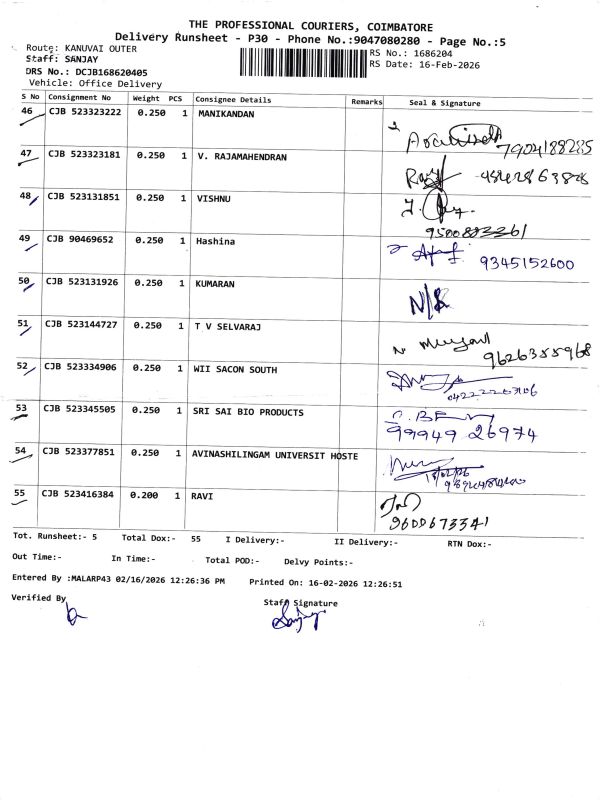 THE PROFESSIONAL COURIERS, COIMBATORE
Delivery Runsheet - P30 - Phone No.:9047080280 - Page No.:5
Route: KANUVAI OUTER
RS No.: 1686204
Staff: SANJAY
RS Date: 16-Feb-2026
DRS No.: DCJB168620405
Vehicle: Office Delivery
S No Consignment No Weight PCS Consignee Details Remarks Seal & Signature
46 CJB 523323222 0.250 1 MANIKANDAN 7904188285
47 CJB 523323181 0.250 1 V. RAJAMAHENDRAN
48 CJB 523131851 0.250 1 VISHNU
49 CJB 90469652 0.250 1 Hashina 9345152600
50 CJB 523131926 0.250 1 KUMARAN N/S
51 CJB 523144727 0.250 1 T V SELVARAJ 9626355968
52 CJB 523334906 0.250 1 WII SACON SOUTH
53 CJB 523345505 0.250 1 SRI SAI BIO PRODUCTS 99949 26974
54 CJB 523377851 0.250 1 AVINASHILINGAM UNIVERSIT HOSTE
55 CJB 523416384 0.200 1 RAVI 9600673341
Tot. Runsheet:- 5 Total Dox:- 55 I Delivery:- II Delivery:- RTN Dox:-
Out Time:- In Time:- Total POD:- Delvy Points:-
Entered By :MALARP43 02/16/2026 12:26:36 PM Printed On: 16-02-2026 12:26:51
Verified By Staff Signature
Sanjay